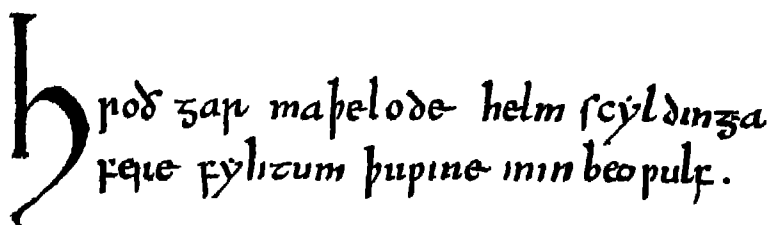 Hroð gar maþelode helm scẏldinga
fere fẏhtum þuƿine min beoƿulf.